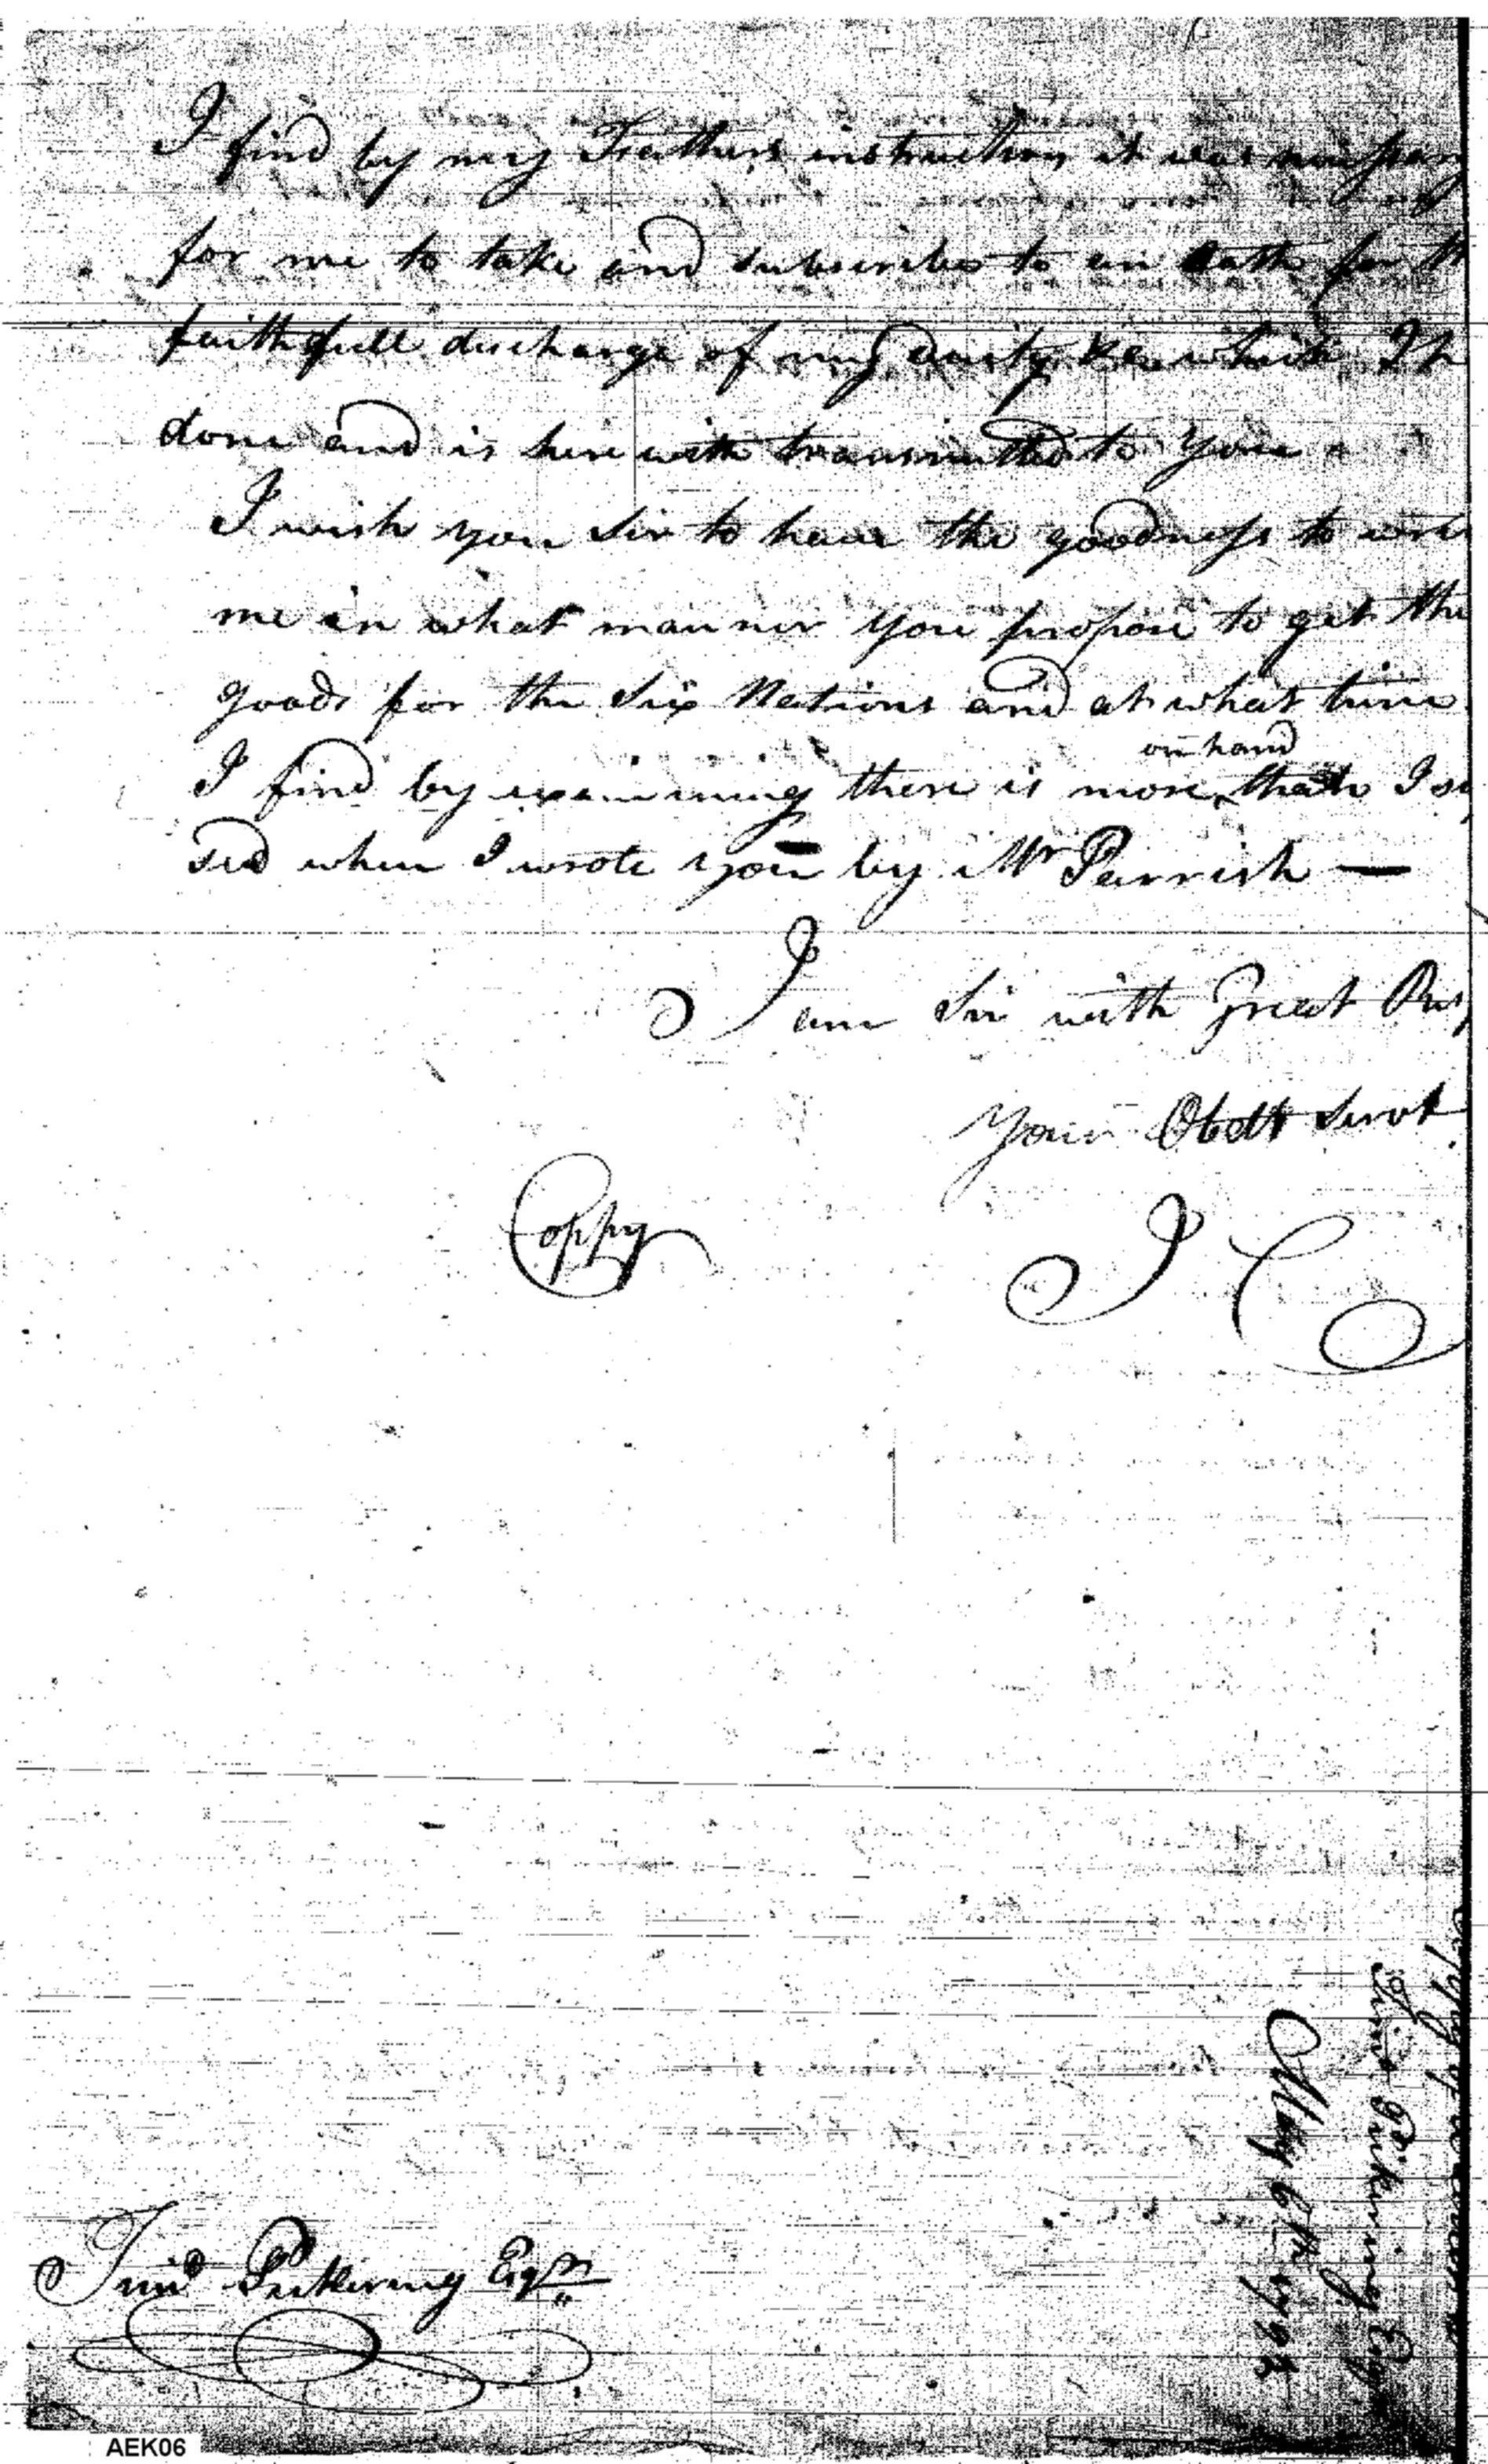 I find by my Fathers instructions it was necessary
for me to take and subscribe to an Oath for th
faithfull discharge of my duity &c which I h
done and is here with transmitted to You
I wish you Sir to have the goodness to write
me in what manner you propose to get the
goods for the Six Nations and at what time
on hand
I find by examining there is more than I su
sed when I wrote you by Mr Parrish —
I am Sir with Great Res
Your Obedt Servt
Coppy
I C
Timo Pickering Esqr
Coppy of
Timo Pickering Esqr
May 6th 179
AEK06